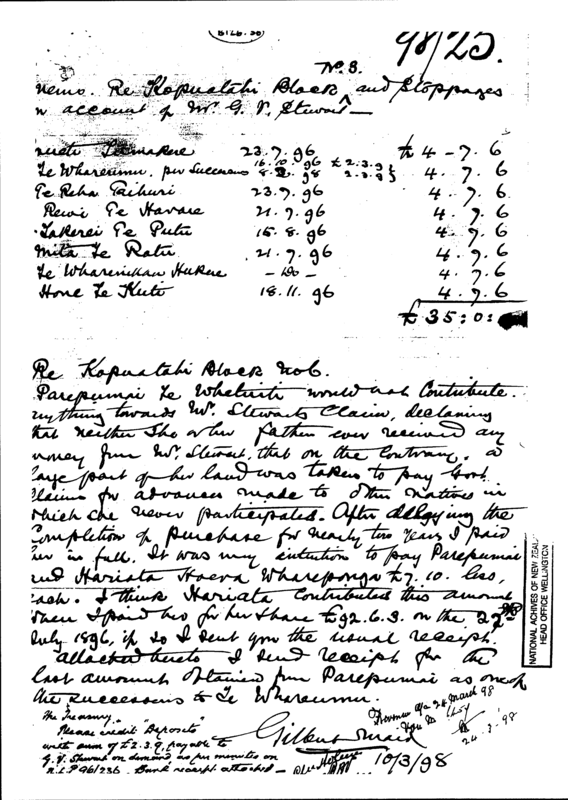 98/25.
No. 3.
Memo. Re Kopuatahi Block, and Stoppages
n account of Mr. G. V. Stewart —
23.7.96 £4-7.6
Te Whareumu, per Successors 16.10.96 £2.3.9 4.7.6
2.3.9
Te Reha Taihuri 23.7.96 4.7.6
Rewi Te Havare 21.7.96 4.7.6
Takerei Te Putu 15.8.96 4.7.6
Mita Te Ratu 21.7.96 4.7.6
Te Wharenikau Hukere — do — 4.7.6
Hone Te Kuti 18.11.96 4.7.6
£35:0:
Re Kopuatahi Block No 6.
Parepumai Te Whetuiti would not Contribute
nything towards Mr. Stewarts Claim, declaring
hat neither She or her father ever received any
money from Mr. Stewart, that on the Contrary, a
large part of her land was taken to pay Govt
Claims for advances made to other Natives in
which she never participated. After delaying the
Completion of purchase for nearly two years I paid
her in full. It was my intention to pay Parepumai
and Hariata Haeva Whareponga £7.10. less,
each. I think Hariata Contributed this amount
when I paid her for her Share £92.6.3. on the 22nd
July 1896, if so I sent you the usual receipt.
Attached hereto I send receipt for the
last amount obtained from Parepumai as one of
the successors to Te Whareumu.
Gilbert Mair
10/3/98
The Treasury.
Please credit "Deposits"
with sum of £2.3.9, payable to
G. V. Stewart on demand, as per minutes on
N.L.P 96/236. Bank receipt attached —
24 March 98
24.3.98
NATIONAL ARCHIVES OF NEW ZEAL
HEAD OFFICE WELLINGTON